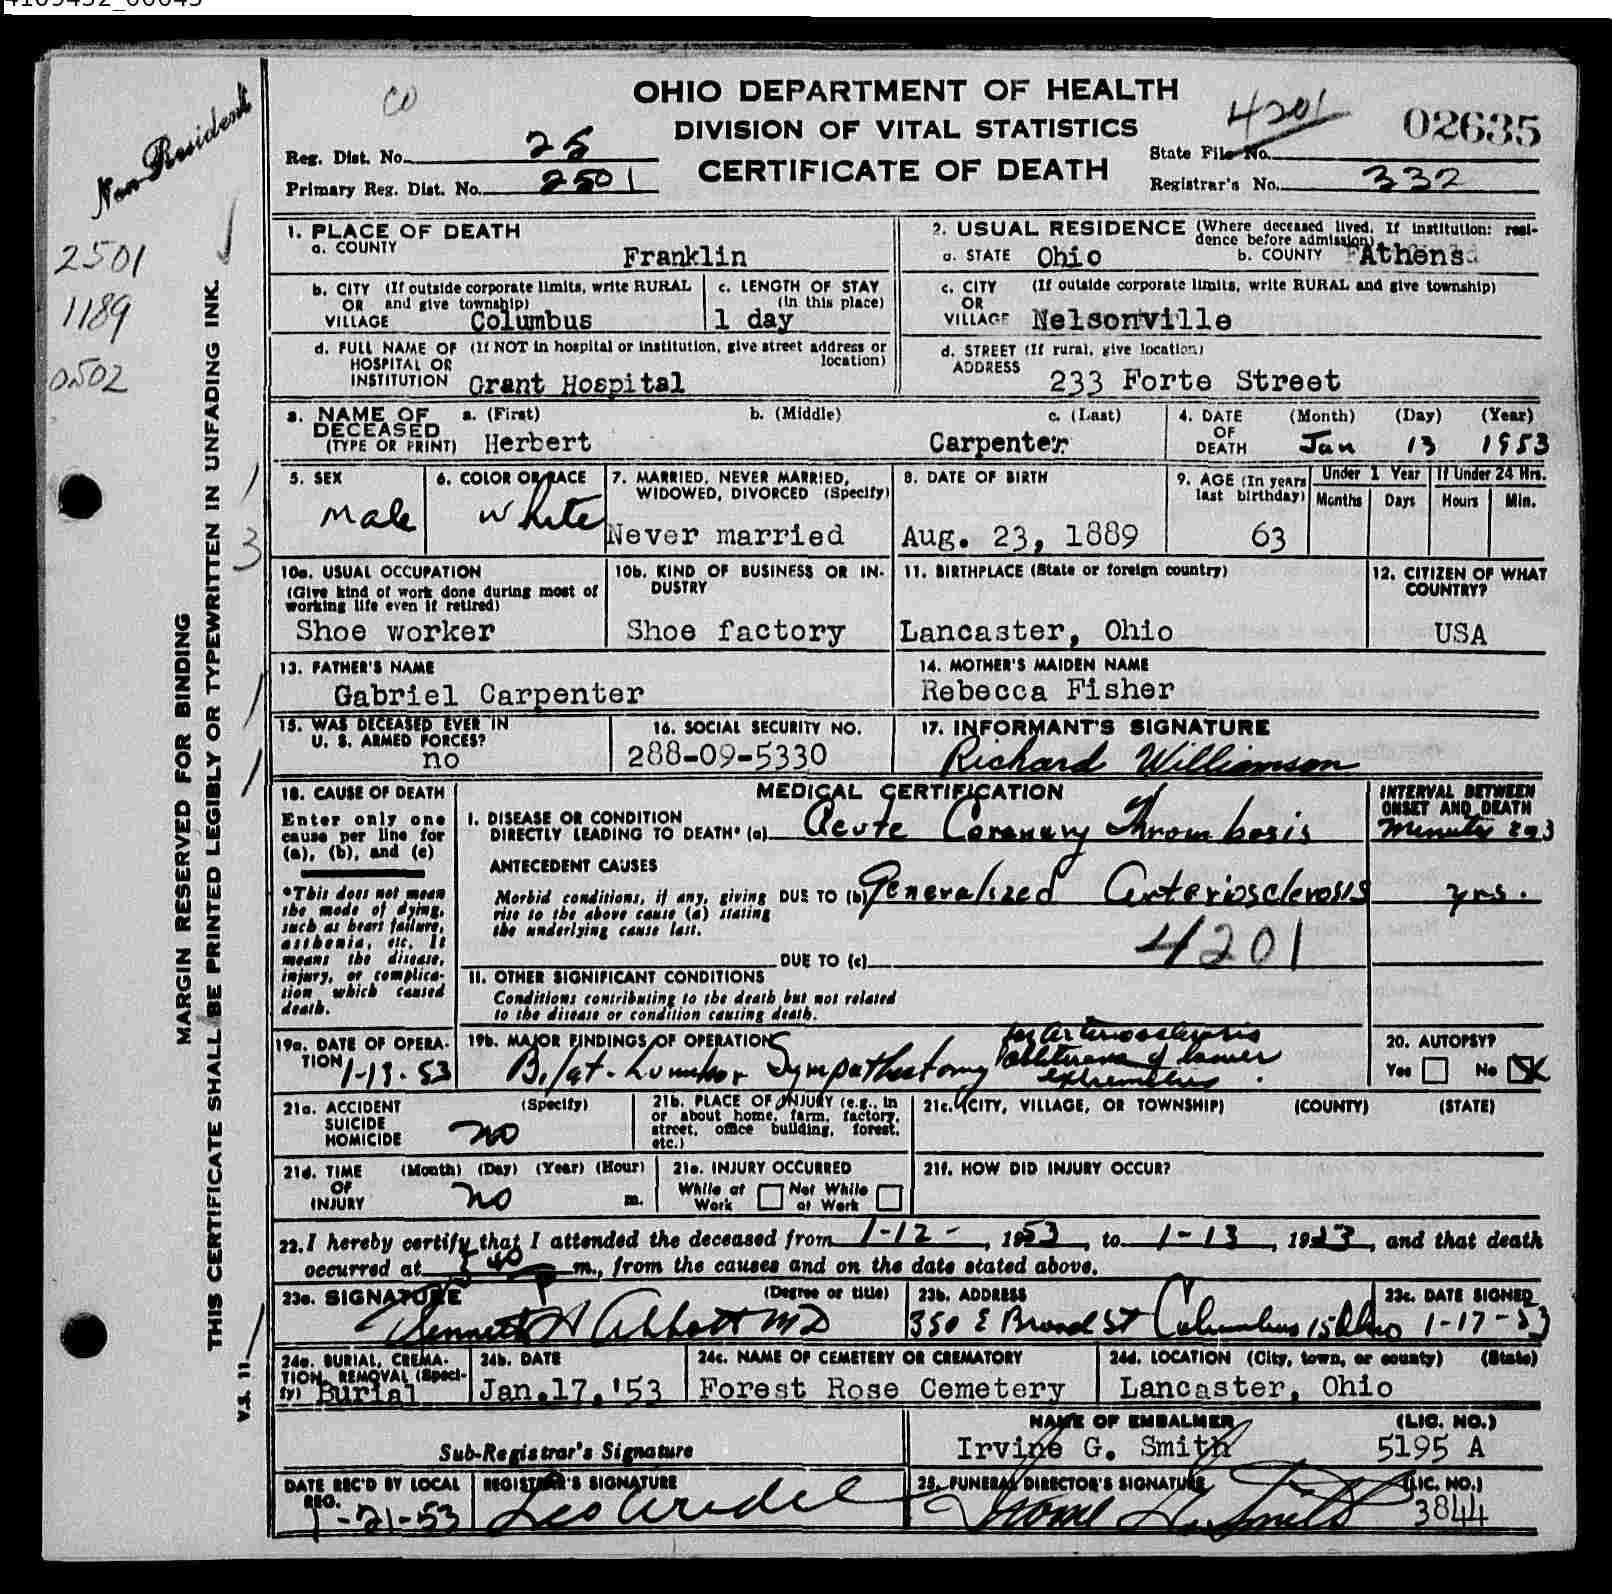 OHIO DEPARTMENT OF HEALTH
DIVISION OF VITAL STATISTICS
CERTIFICATE OF DEATH
Non-Resident
2501
1189
0502
MARGIN RESERVED FOR BINDING
THIS CERTIFICATE SHALL BE PRINTED LEGIBLY OR TYPEWRITTEN IN UNFADING INK.
V.S. 11
3
co
Reg. Dist. No. 25
Primary Reg. Dist. No. 2501
4201
02635
State File No.
Registrar's No. 332
1. PLACE OF DEATH
a. COUNTY Franklin
b. CITY (If outside corporate limits, write RURAL
OR and give township)
VILLAGE Columbus
c. LENGTH OF STAY
(in this place)
1 day
d. FULL NAME OF (If NOT in hospital or institution, give street address or
HOSPITAL OR location)
INSTITUTION Grant Hospital
2. USUAL RESIDENCE (Where deceased lived. If institution: resi-
dence before admission)
a. STATE Ohio b. COUNTY Athens
c. CITY (If outside corporate limits, write RURAL and give township)
OR
VILLAGE Nelsonville
d. STREET (If rural, give location)
ADDRESS 233 Forte Street
3. NAME OF a. (First) b. (Middle) c. (Last)
DECEASED
(TYPE OR PRINT) Herbert Carpenter
4. DATE (Month) (Day) (Year)
OF
DEATH Jan 13 1953
5. SEX
Male
6. COLOR OR RACE
White
7. MARRIED, NEVER MARRIED,
WIDOWED, DIVORCED (Specify)
Never married
8. DATE OF BIRTH
Aug. 23, 1889
9. AGE (In years
last birthday)
63
Under 1 Year
Months Days
If Under 24 Hrs.
Hours Min.
10a. USUAL OCCUPATION
(Give kind of work done during most of
working life even if retired)
Shoe worker
10b. KIND OF BUSINESS OR IN-
DUSTRY
Shoe factory
11. BIRTHPLACE (State or foreign country)
Lancaster, Ohio
12. CITIZEN OF WHAT
COUNTRY?
USA
13. FATHER'S NAME
Gabriel Carpenter
14. MOTHER'S MAIDEN NAME
Rebecca Fisher
15. WAS DECEASED EVER IN
U. S. ARMED FORCES?
no
16. SOCIAL SECURITY NO.
288-09-5330
17. INFORMANT'S SIGNATURE
Richard Williamson
18. CAUSE OF DEATH
Enter only one
cause per line for
(a), (b), and (c)
*This does not mean
the mode of dying,
such as heart failure,
asthenia, etc. It
means the disease,
injury, or complica-
tion which caused
death.
MEDICAL CERTIFICATION
I. DISEASE OR CONDITION
DIRECTLY LEADING TO DEATH* (a) Acute Coronary Thrombosis
ANTECEDENT CAUSES
Morbid conditions, if any, giving DUE TO (b) Generalized Arteriosclerosis
rise to the above cause (a) stating
the underlying cause last.
4201
DUE TO (c)
II. OTHER SIGNIFICANT CONDITIONS
Conditions contributing to the death but not related
to the disease or condition causing death.
INTERVAL BETWEEN
ONSET AND DEATH
Minutes
yrs.
19a. DATE OF OPERA-
TION 1-13-53
19b. MAJOR FINDINGS OF OPERATION
Bilat. Lumbar Sympathectomy
for arteriosclerosis
obliterans of lower
extremities.
20. AUTOPSY?
Yes No X
21a. ACCIDENT (Specify)
SUICIDE
HOMICIDE no
21b. PLACE OF INJURY (e.g., in
or about home, farm, factory,
street, office building, forest,
etc.)
21c. (CITY, VILLAGE, OR TOWNSHIP) (COUNTY) (STATE)
21d. TIME (Month) (Day) (Year) (Hour)
OF
INJURY no m.
21e. INJURY OCCURRED
While at Not While
Work at Work
21f. HOW DID INJURY OCCUR?
22. I hereby certify that I attended the deceased from 1-12-, 1953, to 1-13, 1953, and that death
occurred at 5 40 P m., from the causes and on the date stated above.
23a. SIGNATURE (Degree or title)
Kenneth H Abbott MD
23b. ADDRESS
350 E Broad St Columbus 15 Ohio
23c. DATE SIGNED
1-17-53
24a. BURIAL, CREMA-
TION, REMOVAL (Speci-
fy) Burial
24b. DATE
Jan.17,'53
24c. NAME OF CEMETERY OR CREMATORY
Forest Rose Cemetery
24d. LOCATION (City, town, or county) (State)
Lancaster, Ohio
Sub-Registrar's Signature
NAME OF EMBALMER (LIC. NO.)
Irvine G. Smith 5195 A
DATE REC'D BY LOCAL
REG.
1-21-53
REGISTRAR'S SIGNATURE
25. FUNERAL DIRECTOR'S SIGNATURE (LIC. NO.)
3844